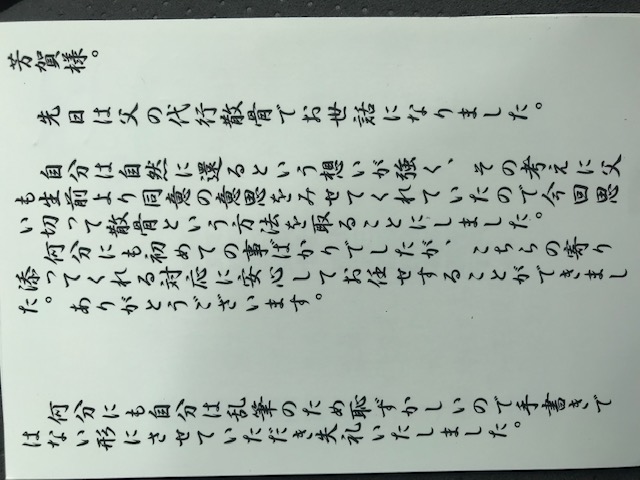 芳賀様。
先日は父の代行散骨でお世話になりました。
自分は自然に還るという想いが強く、その考えに父
も生前より同意の意思をみせてくれていたので今回思
い切って散骨という方法を取ることにしました。
何分にも初めての事ばかりでしたが、こちらの寄り
添ってくれる対応に安心してお任せすることができまし
た。ありがとうございます。
何分にも自分は乱筆のため恥ずかしいので手書きで
はない形にさせていただき失礼いたしました。